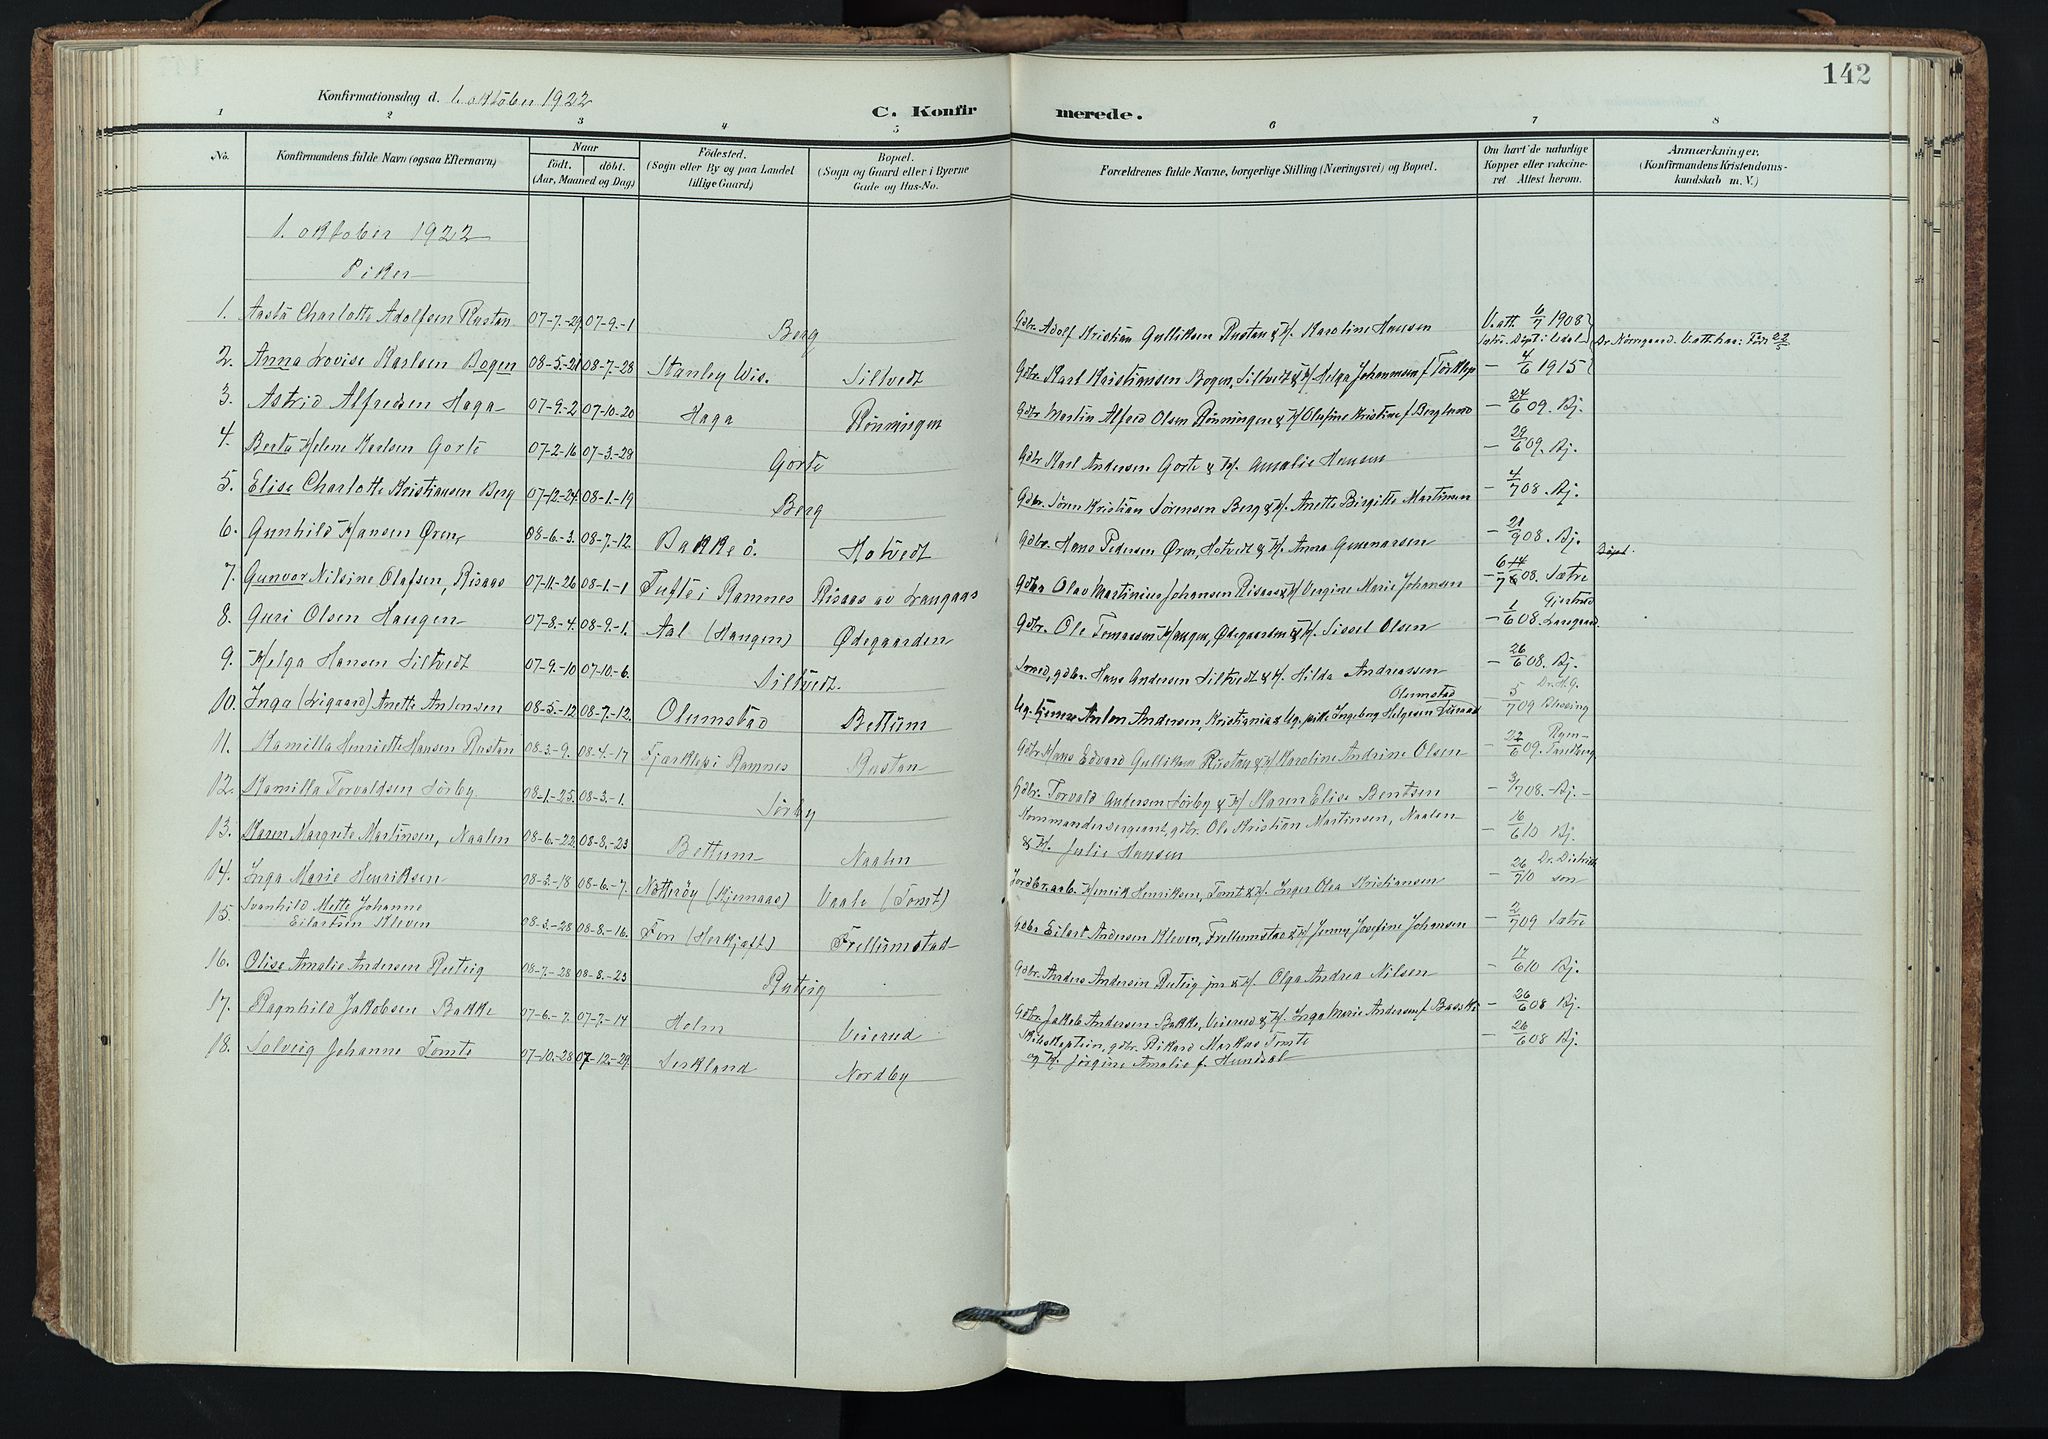 142
Konfirmationsdag d. 1. oktober 1922
C. Konfirmerede.
1 2 3 4 5 6 7 8
No.
Konfirmandens fulde Navn (ogsaa Efternavn)
Naar
født. døbt.
(Aar, Maaned og Dag)
Fødested.
(Sogn eller By og paa Landet
tillige Gaard)
Bopæl.
(Sogn og Gaard eller i Byerne
Gade og Hus-No.
Forældrenes fulde Navne, borgerlige Stilling (Næringsvei) og Bopæl.
Om havt de naturlige
Kopper eller vakcine-
ret Attest herom.
Anmærkninger,
(Konfirmandens Kristendoms-
kundskab m. V.)
1. oktober 1922
Piker
1. Aasta Charlotte Adolfsen Rustan 07-7-29 07-9-1 Berg Gdbr. Adolf Kristian Gulliksen Rustan & H. Karoline Hansen V. att. 6/7 1908
2. Anna Lovise Karlsen Bogen 08-5-21 08-7-28 Stanley Wis. Siltvedt Gdbr. Karl Kristiansen Bogen, Siltvedt & H. Helga Johannesen f. Torklep — 4/6 1915
3. Astrid Alfredsen Haga 07-9-2 07-10-20 Haga Rønningen Gdbr Martin Alfred Olsen Rønningen & H. Olufine Kristine f. Berglund — 24/6 09. Bj.
4. Berta Helene Karlsen Gorte 07-2-16 07-3-28 Gorte Gdbr Karl Andersen Gorte & H. Amalie Hansen — 29/6 09. Bj.
5. Elise Charlotte Kristiansen Berg 07-12-24 08-1-19 Berg Gdbr. Søren Kristian Sørensen Berg & H. Anette Birgitte Martinsen — 4/7 08. Bj.
6. Gunhild Hansen Øren, 08-6-3. 08-7-12. Bakke ö. Hotvedt Gdbr. Hans Pedersen Øren, Hotvedt & H. Anna Gunnarsen — 21/9 08. Bj.
7. Gunvor Nilsine Olafsen, Risaas 07-11-26 08-1-1 Tufte i Ramnes Risaas av Langaas Gdbr Olav Martinius Johansen Risaas & H. Vergine Marie Johansen — 08. Sætre
8. Guri Olsen Haugen 07-8-4. 08-9-1. Aal (Haugen) Ødegaarden Gdbr. Ole Tomassen Haugen, Ødegaarden & H. Sissel Olsen — 1/6 08.
9. Helga Hansen Siltvedt 07-9-10 07-10-6. Siltvedt Smed, gdbr. Hans Andersen Siltvedt & H. Hilda Andreassen — 26/6 08. Bj.
10. Inga (Ligaard) Anette Antonsen 08-5-12 08-7-12. Olumstad Bettum Ug. Anton Andersen, Kristiania & Ug. pike Ingeborg Helgesen Olumstad — 5/7 09 Blessing
11. Kamilla Henriette Hansen Rustan 08-3-9. 08-4-17 Fjærklep i Ramnes Rustan Gdbr Hans Edvard Gulliksen Rustan & H. Karoline Andrine Olsen — 22/6 09. Tandberg
12. Kamilla Torvaldsen Sørby 08-1-25. 08-3-1. Sørby Gdbr. Torvald Andersen Sørby & H. Maren Elise Bentsen — 3/7 08. Bj.
13. Karen Margrete Martinsen, Naalen 08-6-22 08-8-23 Bettum Naalen Kommandersergeant, gdbr. Ole Kristian Martinsen, Naalen
& H. Julie Hansen — 16/6 10 Bj.
14. Inga Marie Henriksen 08-3-18 08-6-7. Nøtterøy (Kjernaas) Vaale (Tomt) Jordbr. arb. Henrik Henriksen, Tomt & H. Inger Olea Kristiansen — 26/7 10
15. Svanhild Mette Johanne
Eilertsen Kleven 08-3-28 08-8-16. Fon (Herkjøft) Frellumstad Gdbr Eilert Andersen Kleven, Frellumstad & H. Jenny Josefine Johansen — 2/7 09 Sætre
16. Olise Amalie Andersen Rutvig 08-7-28 08-8-23 Rutvig Gdbr. Anders Andersen Rutvig jnr & H. Olga Andrea Nilsen — 17/6 10 Bj.
17. Ragnhild Jakobsen Bakke 07-6-7. 07-7-14 Holm Veierud Gdbr. Jakob Andersen Bakke, Veierud & H. Inga Marie Andersen f. — 26/6 08 Bj.
18. Solveig Johanne Tomte 07-10-28 07-12-29 Serkland Nordby Skibskaptein, gdbr. Rikard Markus Tomte
og H. Jørgine Amalie f. Hundsal — 26/6 08 Bj.